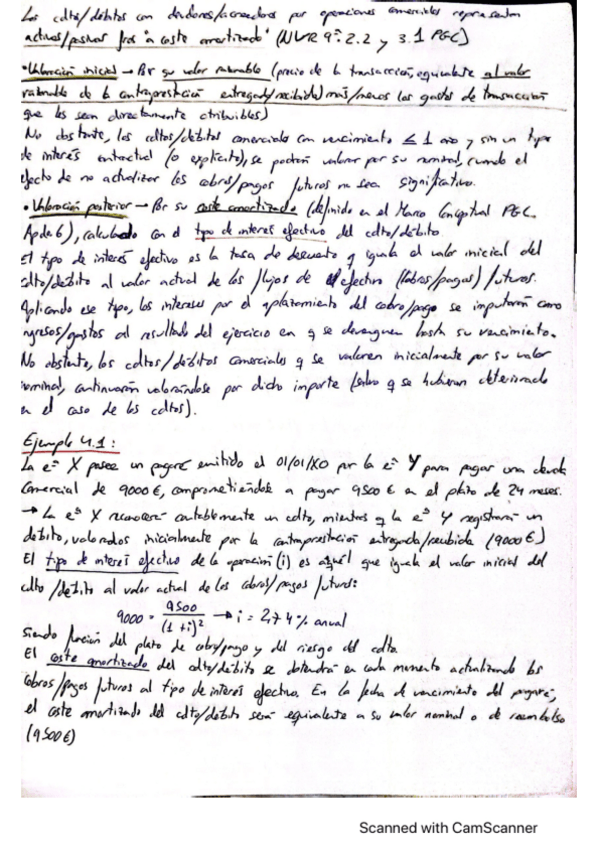 Los cdtos/débitos con deudores/acreedores por operaciones comerciales representan
activos/pasivos fros "a coste amortizado" (NVR 9ª: 2.2 y 3.1 PGC)
• Valoración inicial → Por su valor razonable (precio de la transacción, equivalente al valor
razonable de la contraprestación entregada/recibida) más/menos los gastos de transacción
que les sean directamente atribuibles)
No obstante, los cdtos/débitos comerciales con vencimiento ≤ 1 año y sin un tipo
de interés contractual (o explícito), se podrán valorar por su nominal, cuando el
efecto de no actualizar los cobros/pagos futuros no sea significativo.
• Valoración posterior → Por su coste amortizado (definido en el Marco Conceptual PGC.
Apdo 6), calculado con el tipo de interés efectivo del cdto/débito.
El tipo de interés efectivo es la tasa de descuento q iguala el valor inicial del
cdto/débito al valor actual de los flujos de efectivo (cobros/pagos) futuros.
Aplicando ese tipo, los intereses por el aplazamiento del cobro/pago se imputarán como
ingresos/gastos al resultado del ejercicio en q se devenguen hasta su vencimiento.
No obstante, los cdtos/débitos comerciales q se valoren inicialmente por su valor
nominal, continuarán valorándose por dicho importe (salvo q se hubieran deteriorado
en el caso de los cdtos).
Ejemplo 4.1:
La eª X posee un pagaré emitido el 01/01/X0 por la eª Y para pagar una deuda
comercial de 9000 €, comprometiéndose a pagar 9500 € en el plazo de 24 meses.
→ La eª X reconocerá contablemente un cdto, mientras q la eª Y registrará un
débito, valorados inicialmente por la contraprestación entregada/recibida (9000 €)
El tipo de interés efectivo de la operación (i) es aquél que iguala el valor inicial del
cdto/débito al valor actual de los cobros/pagos futuros:
9000 = 9500 / (1 + i)² → i = 2,74 % anual
siendo función del plazo de cobro/pago y del riesgo del cdto.
El coste amortizado del cdto/débito se obtendrá en cada momento actualizando los
cobros/pagos futuros al tipo de interés efectivo. En la fecha de vencimiento del pagaré,
el coste amortizado del cdto/débito será equivalente a su valor nominal o de reembolso
(9500 €)
Scanned with CamScanner